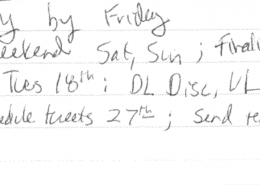 y by Friday
eekend Sat, Sun ; Finali
Tues 18th : DL Disc, UL
edule tweets 27th ; Send re